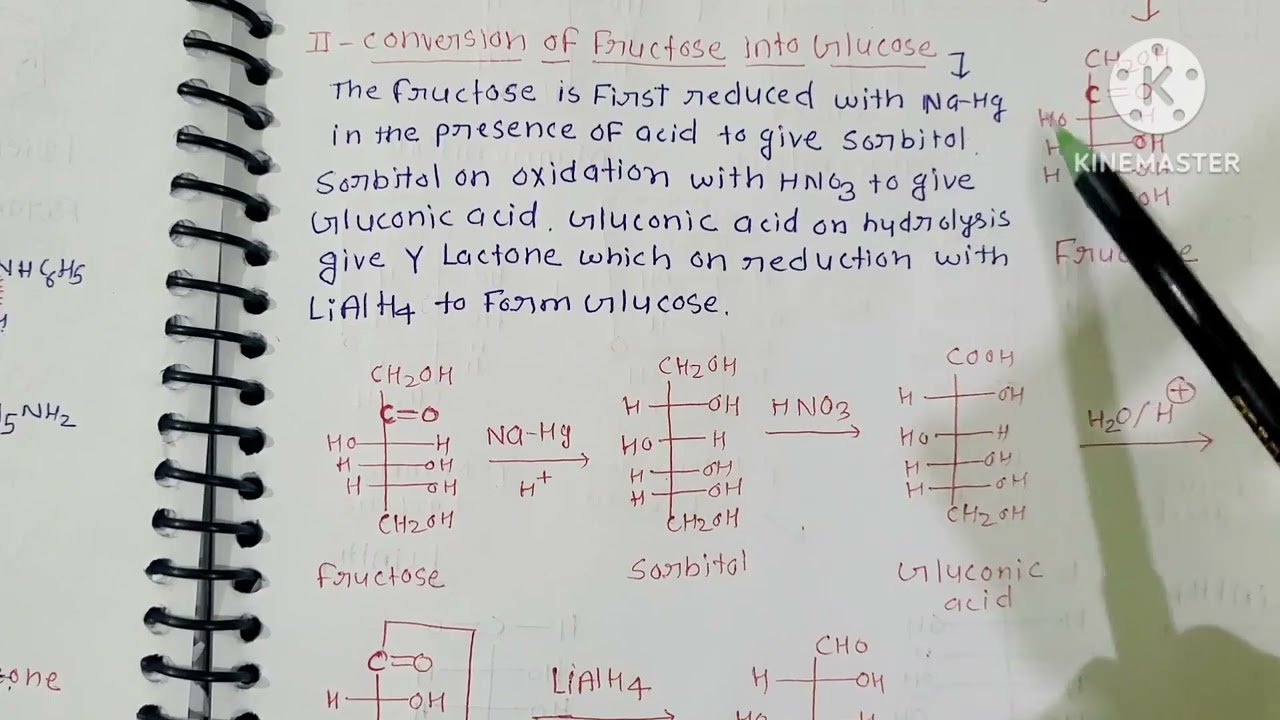 II - Conversion of Fructose into Glucose
The fructose is First reduced with Na-Hg
in the presence of acid to give sorbitol.
Sorbitol on oxidation with HNO3 to give
Gluconic acid. Gluconic acid on hydrolysis
give γ Lactone which on reduction with
LiAlH4 to Form Glucose.
CH2OH
C=O
HO H
H OH
H OH
CH2OH
Fructose
Na-Hg
H+
CH2OH
H OH
HO H
H OH
H OH
CH2OH
Sorbitol
HNO3
COOH
H OH
HO H
H OH
H OH
CH2OH
Gluconic
acid
H2O/H⊕
C=O
H OH
LiAlH4
CHO
H OH
HO H
HO
H OH
H
OH
KINEMASTER
K
NHC6H5
5NH2
one